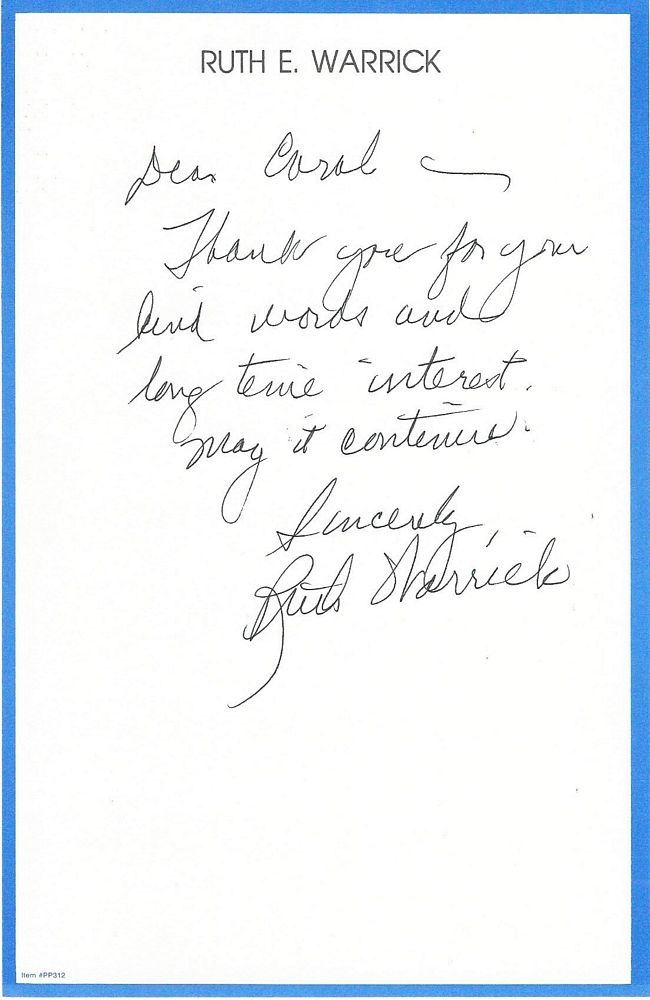 RUTH E. WARRICK
Dear Carol —
Thank you for your
kind words and
long time interest.
May it continue.
Sincerely,
Ruth Warrick
Item #PP312